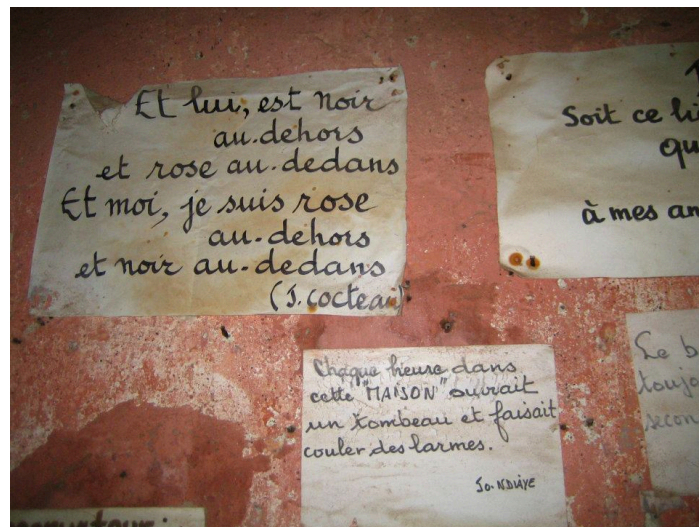 Et lui, est noir
au-dehors
et rose au-dedans
Et moi, je suis rose
au-dehors
et noir au-dedans
(J. Cocteau)
Soit ce
à mes
Chaque heure dans
cette "MAISON" ouvrait
un tombeau et faisait
couler des larmes.
Jo. NDIAYE
Le